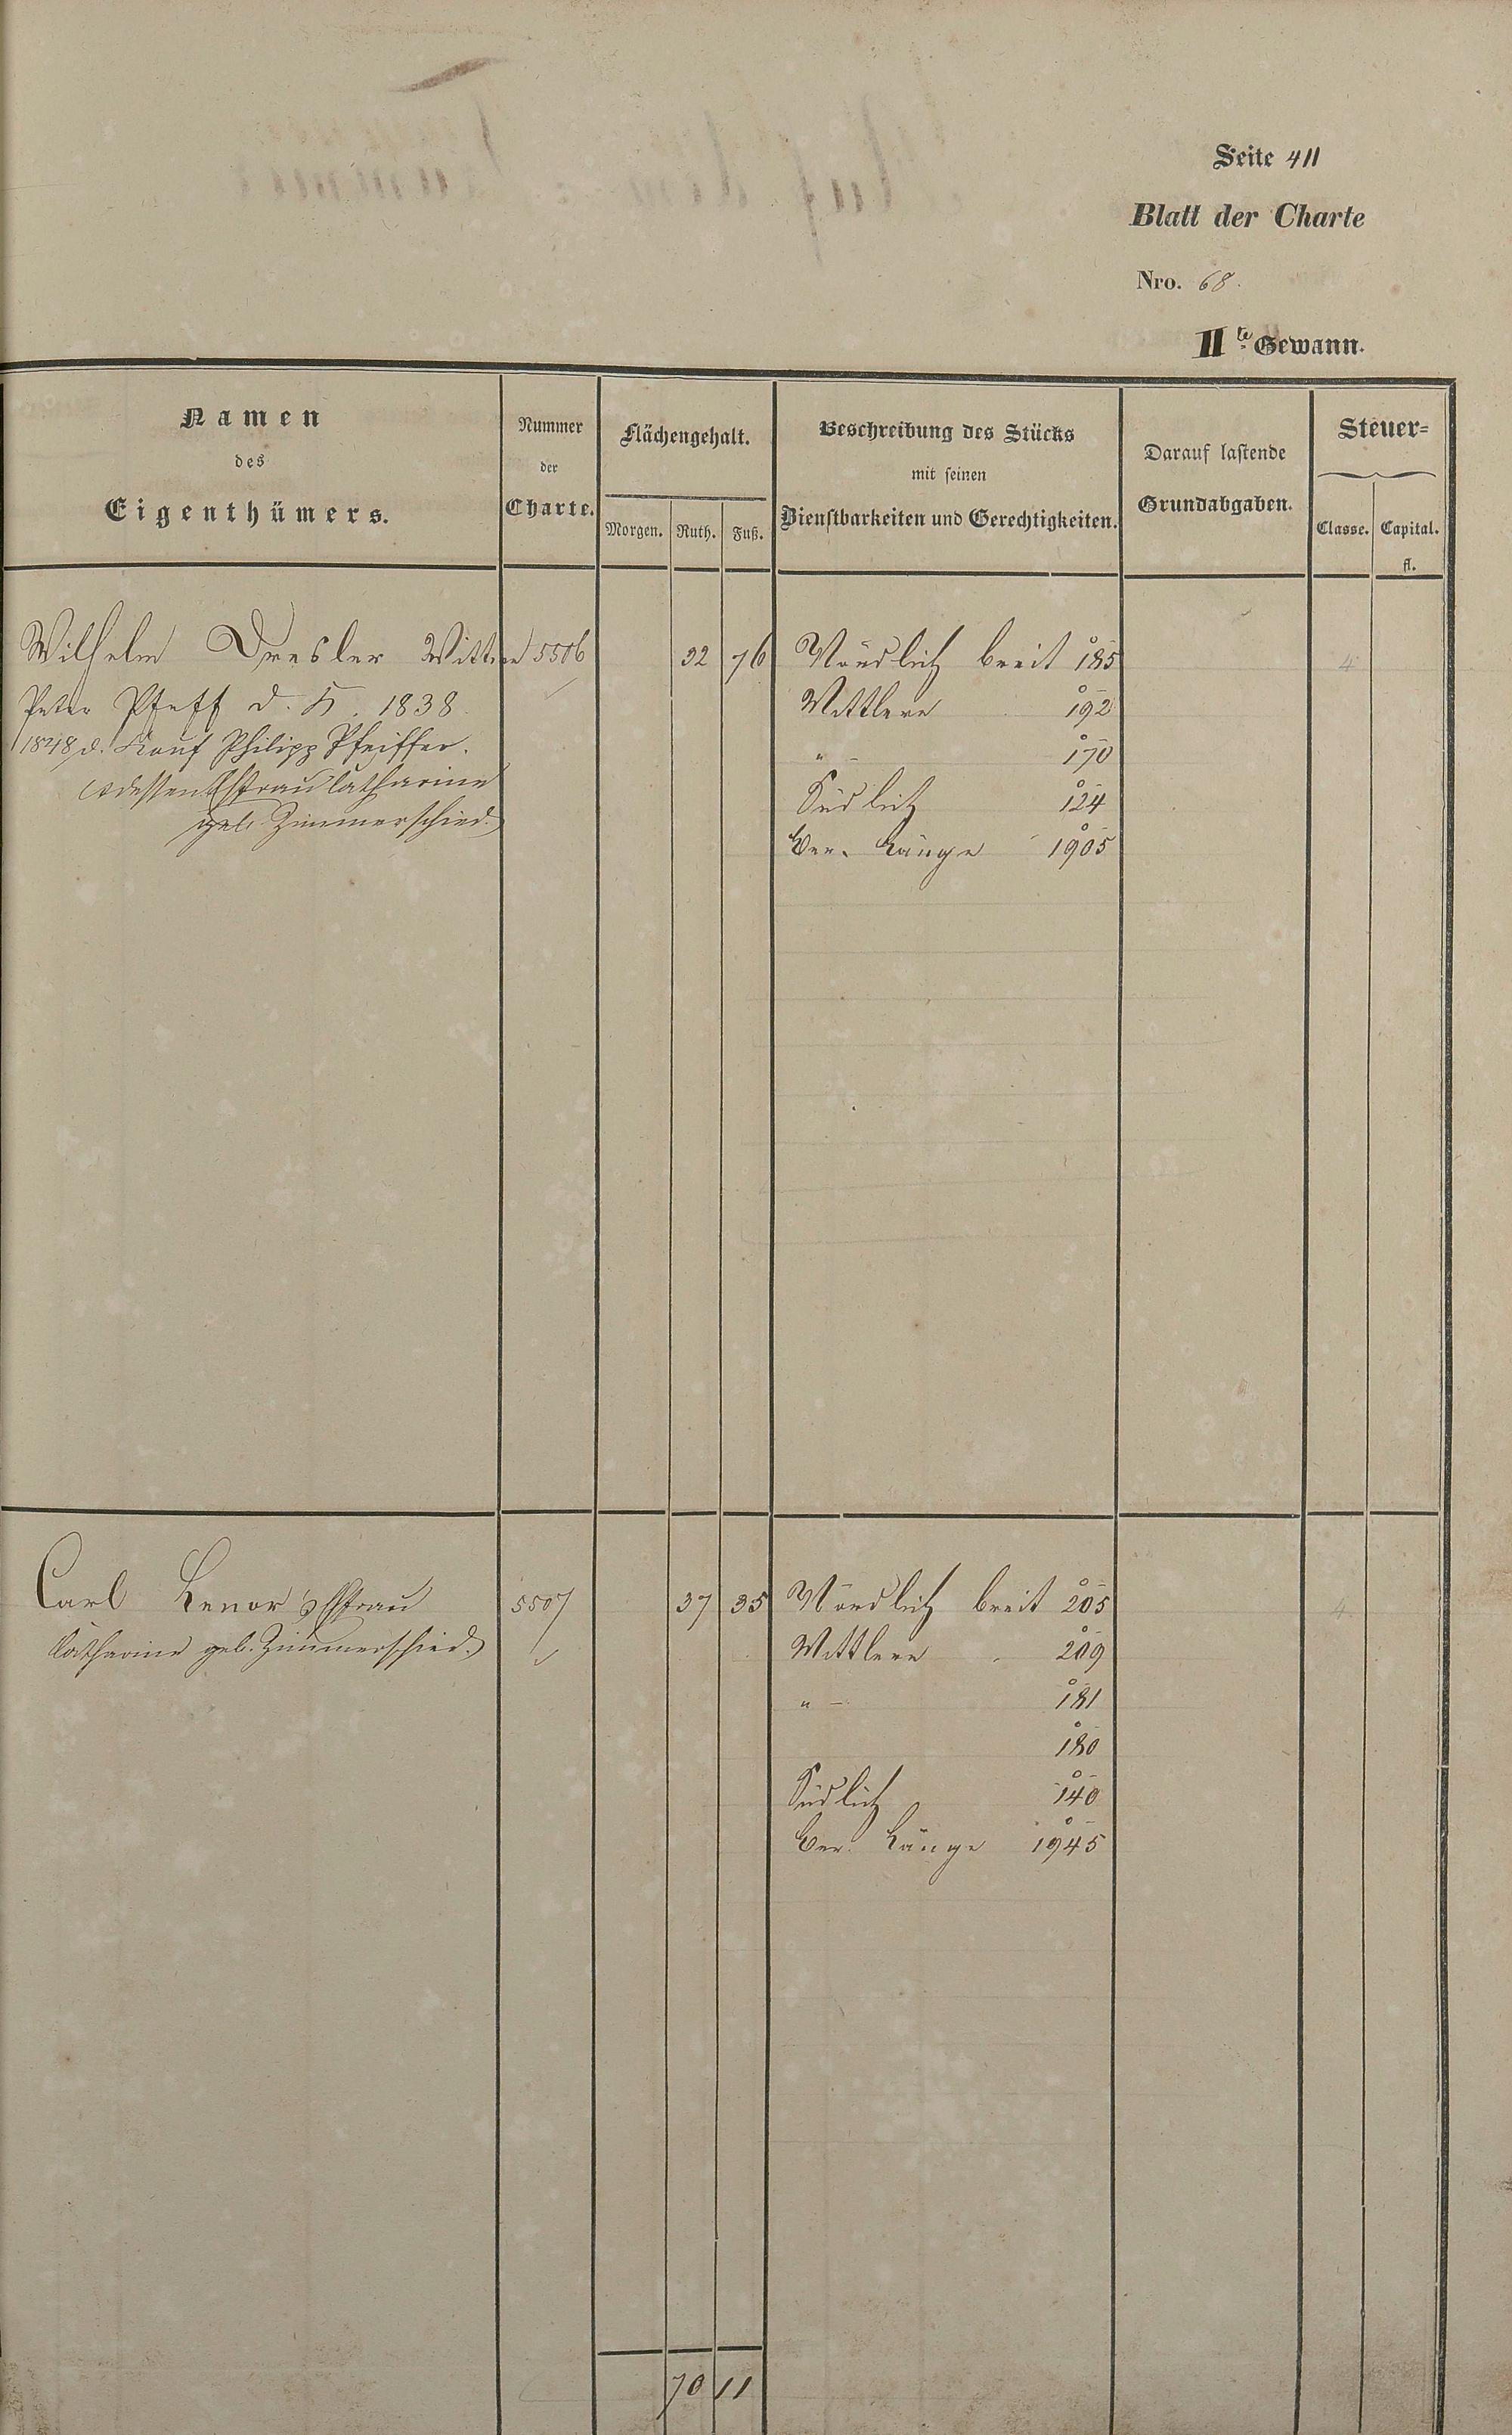 Seite 411
Blatt der Charte
Nro. 68.
IIte Gewann.
Namen
des
Eigenthümers.
Nummer
der
Charte.
Flächengehalt.
Morgen. Ruth. Fuß.
Beschreibung des Stücks
mit seinen
Dienstbarkeiten und Gerechtigkeiten.
Darauf lastende
Grundabgaben.
Steuer=
Classe. Capital.
fl.
Wilhelm Dresler Wittwe 5506 32 76 Nördlich breit 185 4
Peter Pfeff d. K. 1838 Mittlere 192
1848 d. Kauf Philipp Pfeiffer. " - 170
dessen Ehfrau Catharine Südlich 124
geb. Zimmerschied. Ver. Länge 1905
Carl Lenor's Ehfrau 5507 37 35 Nördlich breit 205 4.
Catharine geb. Zimmerschied. Mittlere 209
" - 181
180
Südlich 140
Ver. Länge 1945
70 11